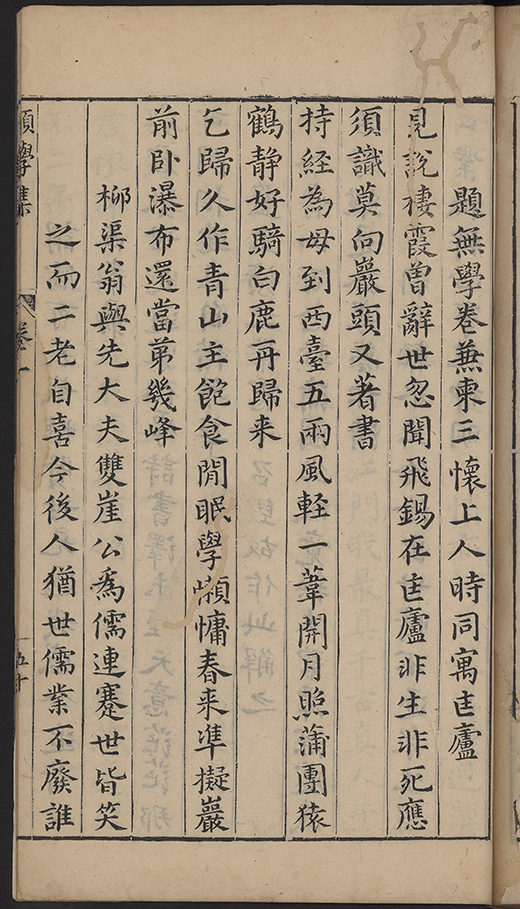 題無學卷蕪柬三懷上人時同寓匡廬
見說棲霞曾辭世忽聞飛錫在匡廬非生非死應
須識莫向巖頭又著書
持經為母到西臺五兩風輕一葦開月照蒲團猿
鶴静好騎白鹿再歸来
乞歸久作青山主飽食閒眠學懶慵春来準擬巖
前卧瀑布還當苐幾峰
柳渠翁與先大夫雙崖公爲儒連蹇世皆笑
之而二老自喜今後人猶世儒業不廢誰
願學集
卷一
五十